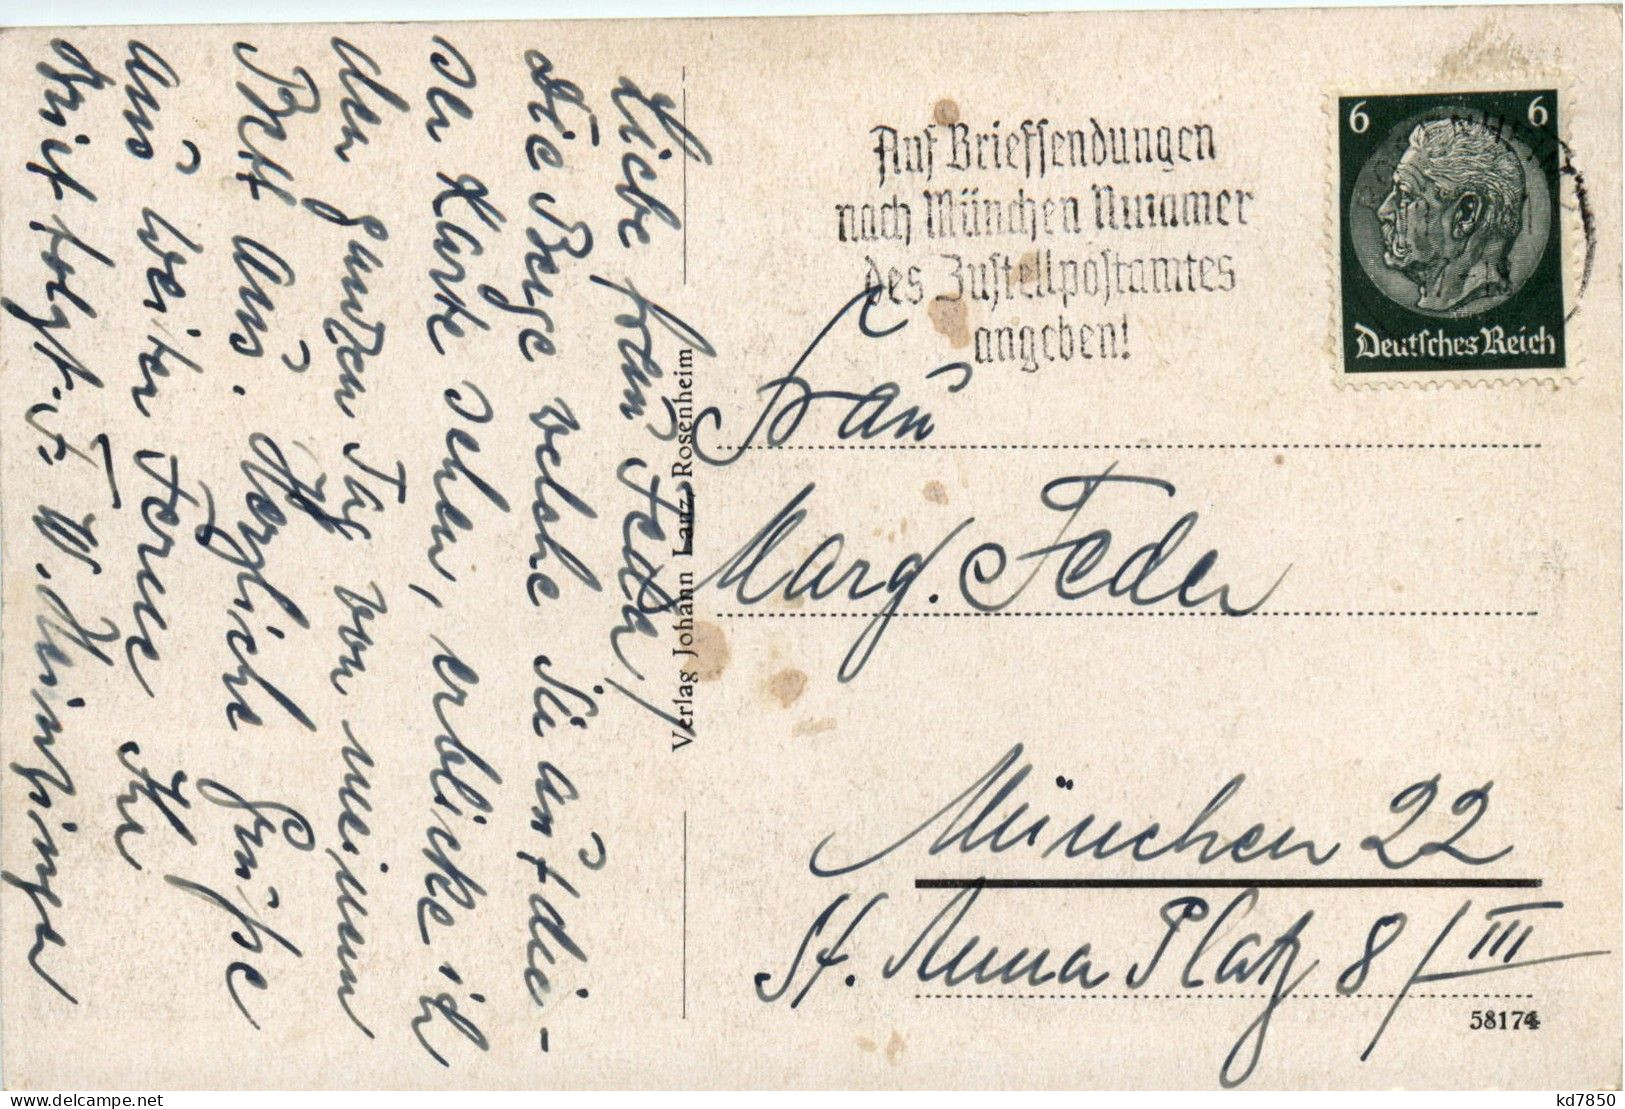 Liebe Frau Feder,
die Berge welche Sie auf die-
ser Karte sehen, erblicke ich
den ganzen Tag von meinem
Bett aus. Herzliche Grüße
aus weiter Ferne Ihr
Brief folgt.
Verlag Johann Lanz, Rosenheim
Auf Briefsendungen
nach München Nummer
des Zustellpostamtes
angeben!
6 6
Deutsches Reich
Frau
Marg. Feder
München 22
St. Anna Platz 8/III
58174
kd7850